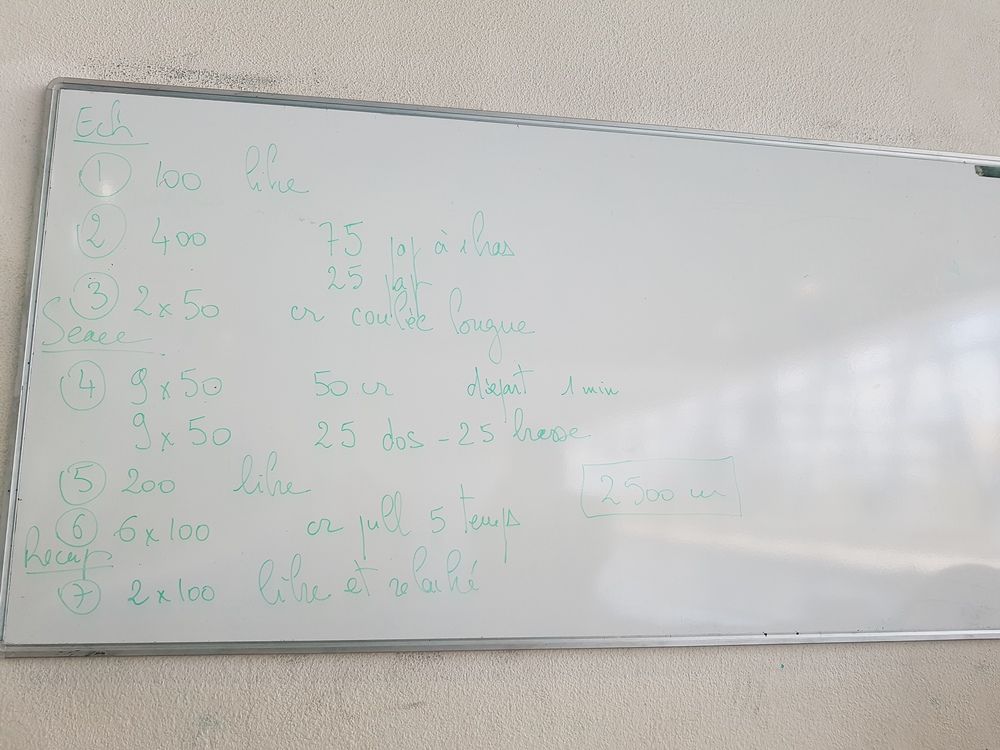 Ech
1 100 libre
2 400 75 pap à 1 bras
25 pap
3 2 x 50 cr coulée longue
Seance
4 9 x 50 50 cr départ 1 min
9 x 50 25 dos - 25 brasse
5 200 libre
2500 m
6 6 x 100 cr pull 5 temps
Recup
7 2 x 100 libre et relaché